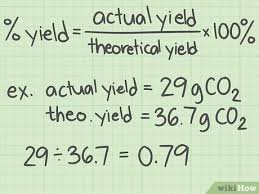 % yield = actual yield / theoretical yield × 100%
ex. actual yield = 29g CO₂
theo. yield = 36.7g CO₂
29 ÷ 36.7 = 0.79
wikiHow